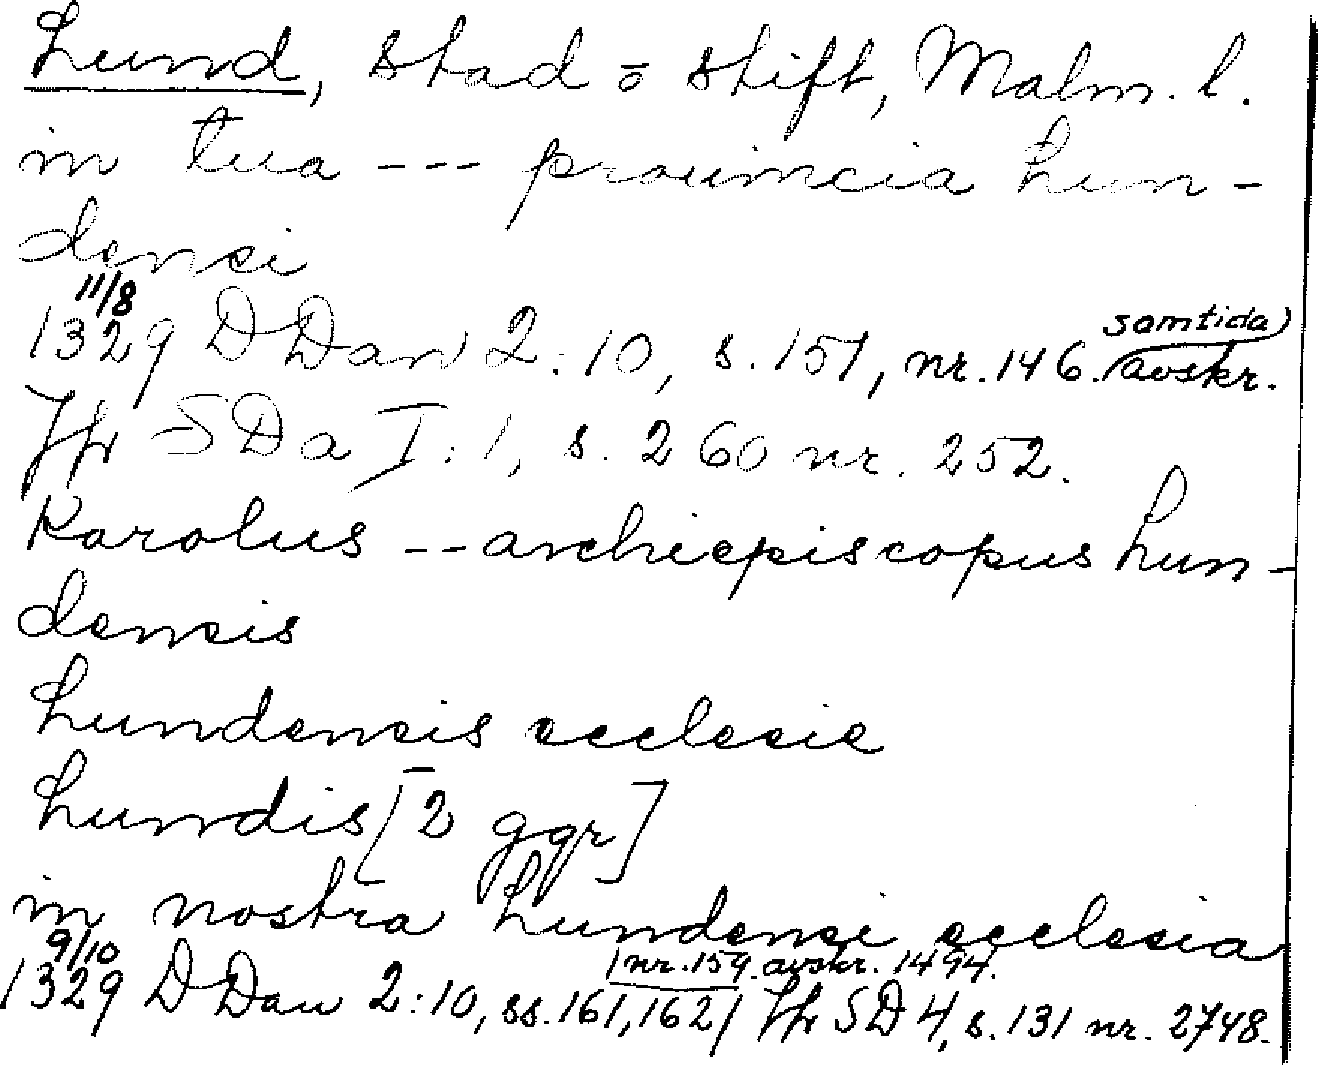 Lund, stad o stift, Malm. l.
in tua --- prouincia Lun-
densi
11/8
1329 DDan 2:10, s. 151, nr. 146. samtida avskr.
Jfr SDa I:1, s. 260 nr. 252.
Karolus -- archiepiscopus Lun-
densis
Lundensis ecclesie
Lundis [2 ggr]
in nostra Lundensi ecclesia
9/10 nr. 159. avskr. 1494.
1329 DDan 2:10, ss. 161, 162/ Jfr SD 4, s. 131 nr. 2748.